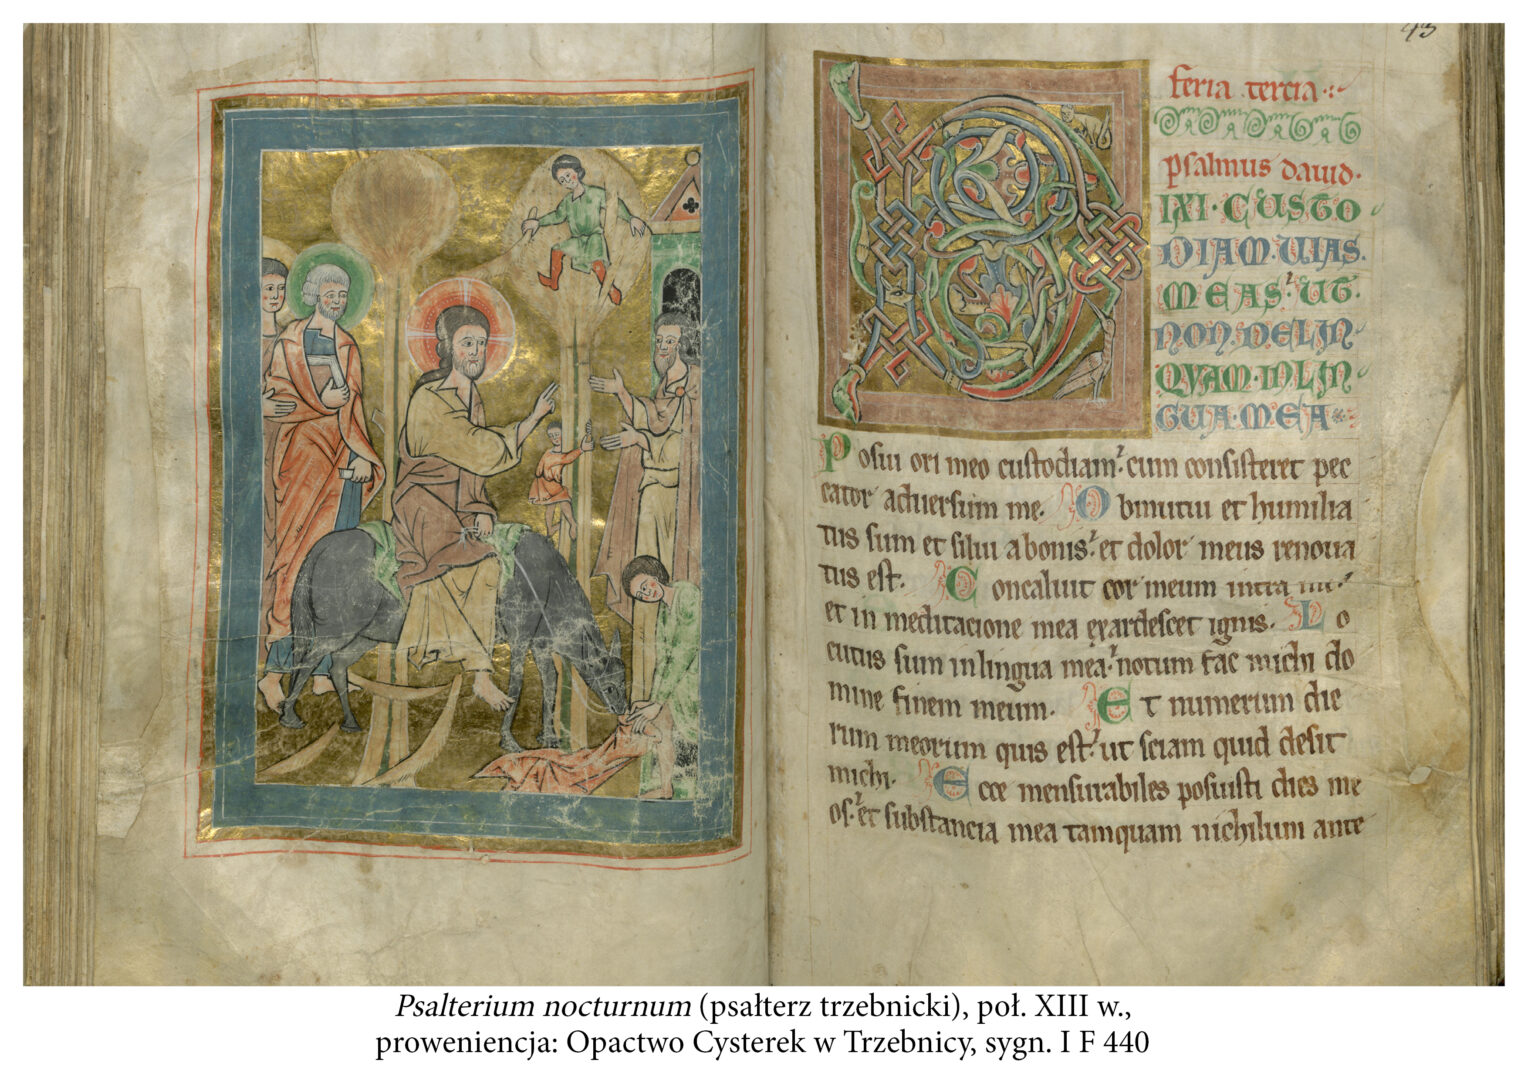 43
feria tercia
psalmus dauid.
IXI · CUSTO
DIAM · UIAS.
MEAS · UT ·
NON · DELIN
QVAM · IN LIN
GUA · MEA
Posui ori meo custodiam · cum consisteret pec
cator aduersum me. Obmutui et humilia
tus sum et silui a bonis · et dolor meus renoua
tus est. Concaluit cor meum intra me ·
et in meditacione mea exardescet ignis. Lo
cutus sum in lingua mea · notum fac michi do
mine finem meum. Et numerum die
rum meorum quis est · ut sciam quid desit
michi. Ecce mensurabiles posuisti dies me
os · et substancia mea tamquam nichilum ante
Psalterium nocturnum (psałterz trzebnicki), poł. XIII w.,
proweniencja: Opactwo Cysterek w Trzebnicy, sygn. I F 440